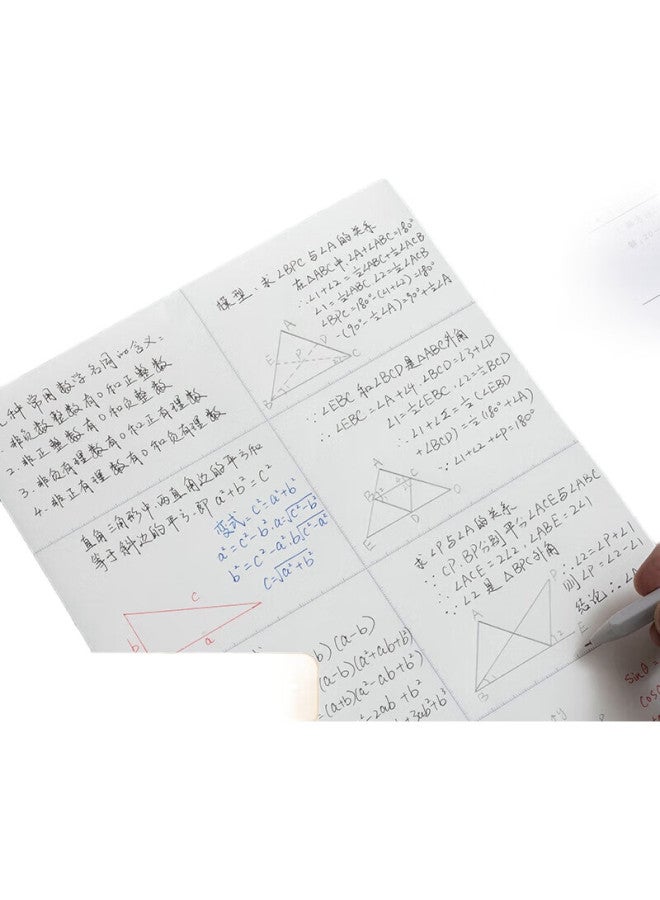 种常用数学名词的含义：
1. 非负数整数有0和正整数
2. 非正整数有0和负整数
3. 非负有理数有0和正有理数
4. 非正有理数有0和负有理数
直角三角形中，两直角边的平方和
等于斜边的平方. 即 a²+b²=c²
变式：c²=a²+b²
a²=c²-b². a=√c²-b²
b²=c²-a². b√c²-a²
c=√a²+b²
c
b
a
模型：求∠BPC与∠A的关系
在△ABC中 ∠A+∠ABC=180°
∴∠1+∠2=½∠ABC+½∠ACB
∠1=½∠ABC ∠2=½∠ACB
∠BPC=180°-(∠1+∠2)=180°
-(90°-½∠A)=90°+½∠A
A
E
P
D
B
C
∵∠EBC和∠BCD是△ABC外角
∴∠EBC=∠A+∠4. ∠BCD=∠3+∠D
∠1=½∠EBC. ∠2=½BCD
∴∠1+∠2=½(∠EBD
+∠BCD)=½(180°+∠A)
∵∠1+∠2+∠P=180°
A
B
C
D
E
求∠P与∠A的关系.
∵CP. BP分别平分∠ACE与∠ABC
∴∠ACE=2∠2. ∠ABE=2∠1
∵∠2是△BPC外角
∴∠2=∠P+∠1
则∠P=∠2-∠1
结论：∠A
A
P
B
2
E
b)(a-b)
(a-b)(a²+ab+b²)
=(a+b)(a²-ab+b²)
-2ab+b²
+3ab²+b³
sinθ=
cos